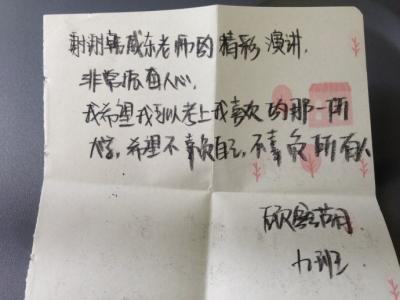 谢谢韩威东老师的精彩演讲.
非常振奋人心.
我希望我可以考上我喜欢的那一所
大学,希望不辜负自己,不辜负所有人
九班